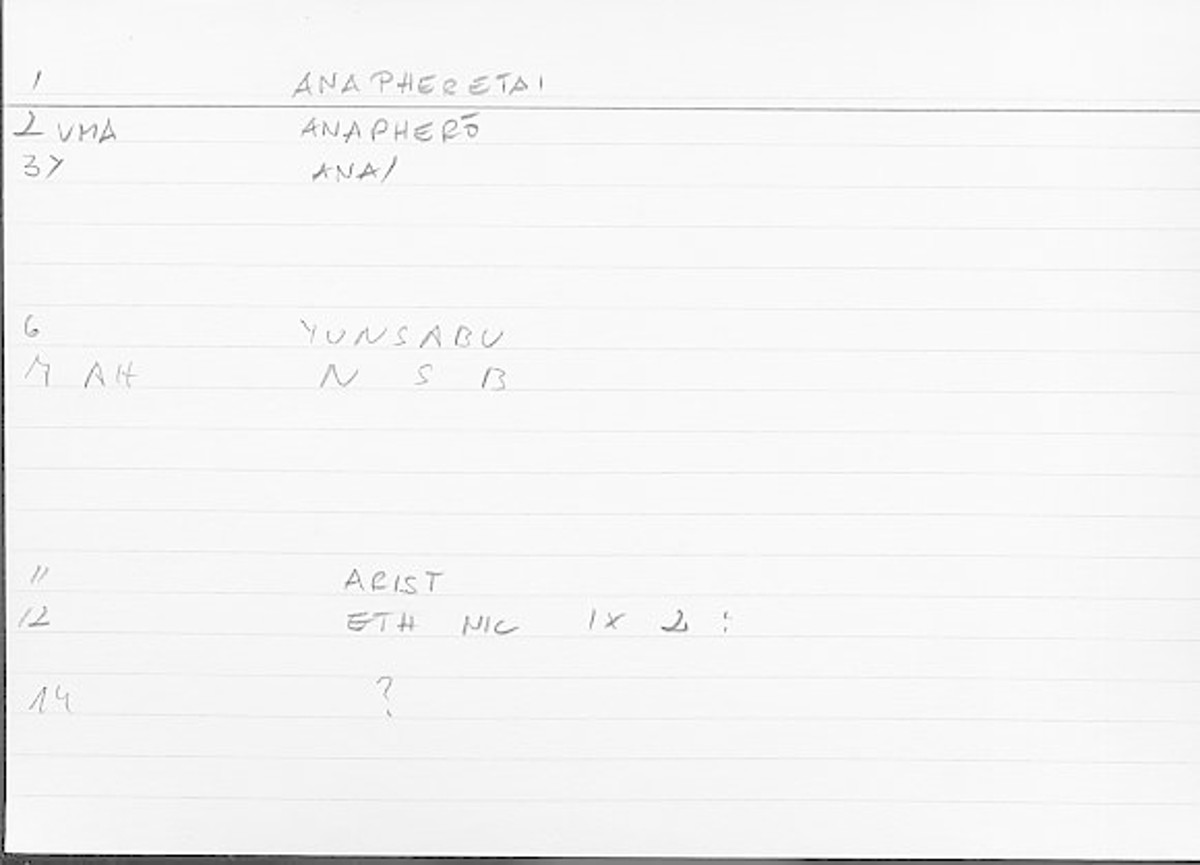 1 ANAPHERETAI
2 VMA ANAPHERŌ
3Y ANA/
6 YUNSABU
7 AH N S B
11 ARIST
12 ETH NIC IX 2 :
14 ?